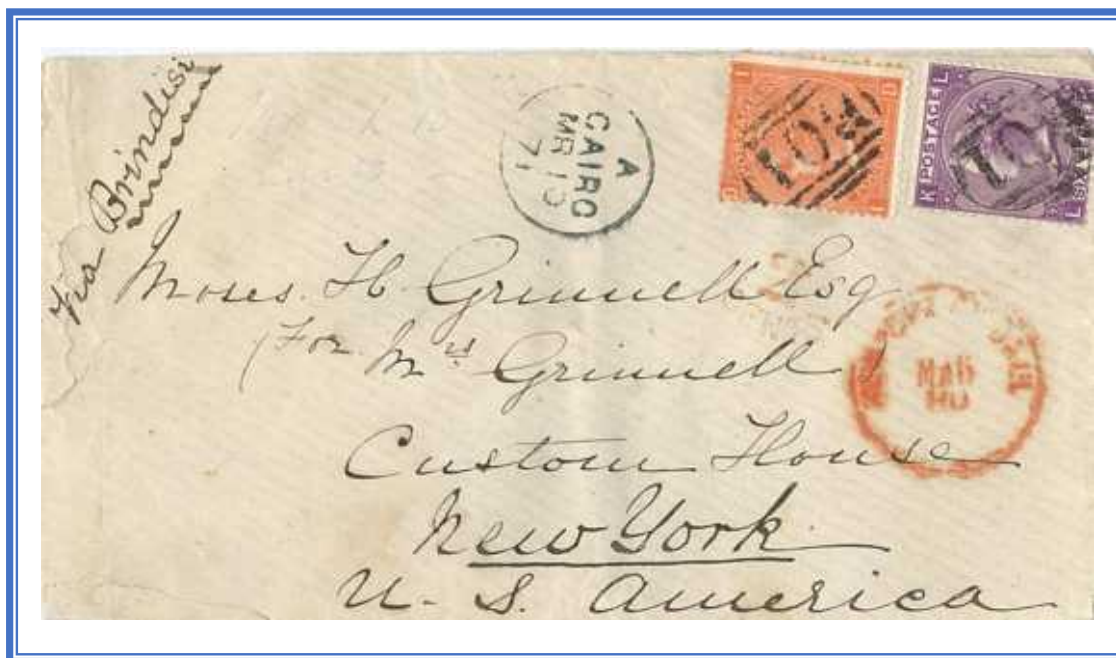 Via Brindisi
A
CAIRO
MR 15
71
K POSTAGE L
L SIX
Moses. H. Grinnell Esq
(For Mrs Grinnell)
Custom House
New York
U. S. America